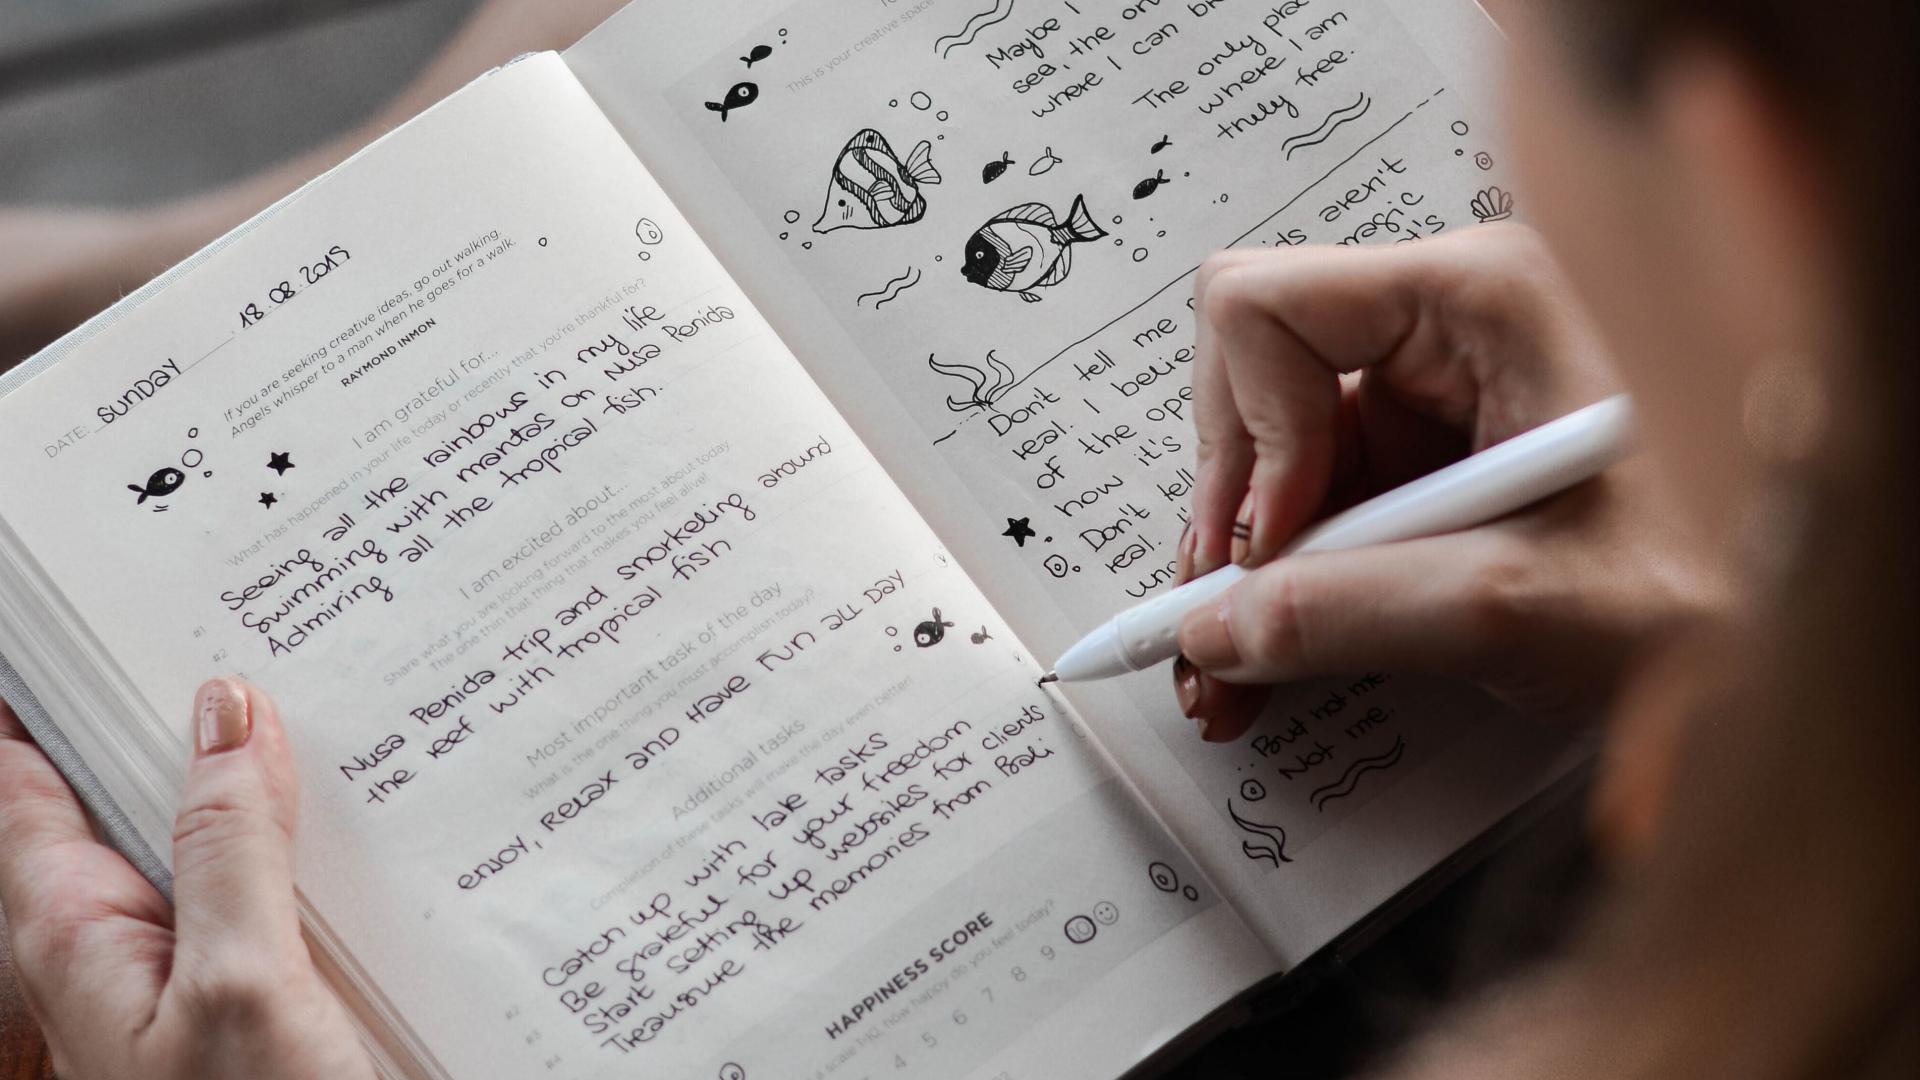 DATE: SUNDAY 18.08.2019
If you are seeking creative ideas, go out walking.
Angels whisper to a man when he goes for a walk.
RAYMOND INMON
I am grateful for...
What has happened in your life today or recently that you're thankful for?
#1 Seeing all the rainbows in my life
#2 Swimming with mantas on Nusa Penida
Admiring all the tropical fish.
I am excited about...
Share what you are looking forward to the most about today
The one thin that thing that makes you feel alive!
Nusa Penida trip and snorkeling around
the reef with tropical fish
Most important task of the day
What is the one thing you must accomplish today?
ENJOY, RELAX AND HAVE FUN ALL DAY
Additional tasks
Completion of these tasks will make the day even better!
#1 Catch up with late tasks
#2 Be grateful for your freedom
#3 Start setting up websites for clients
#4 Treausrue the memories from Bali
HAPPINESS SCORE
a scale 1-10, how happy do you feel today?
4 5 6 7 8 9 10
This is your creative space
Maybe I
see, the
where I can
The only place
where I am
truly free.
aren't
magic
Don't tell me
real. I
of the
how it's
Don't tell
real.
But not me.
Not me.